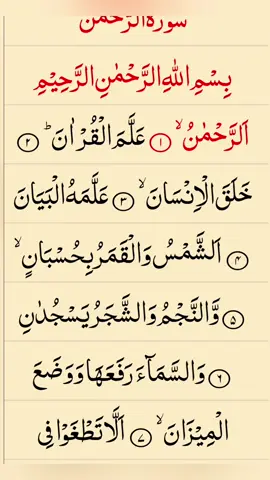 سورة الرحمن
بِسْمِ اللهِ الرَّحْمٰنِ الرَّحِيْمِ
اَلرَّحْمٰنُ ۙ ۝۱ عَلَّمَ الْقُرْاٰنَ ؕ ۝۲
خَلَقَ الْاِنْسَانَ ۙ ۝۳ عَلَّمَهُ الْبَيَانَ
۝۴ اَلشَّمْسُ وَالْقَمَرُ بِحُسْبَانٍ ۙ
۝۵ وَّالنَّجْمُ وَالشَّجَرُ يَسْجُدٰنِ
۝۶ وَالسَّمَآءَ رَفَعَهَا وَوَضَعَ
الْمِيْزَانَ ۙ ۝۷ اَلَّا تَطْغَوْا فِى